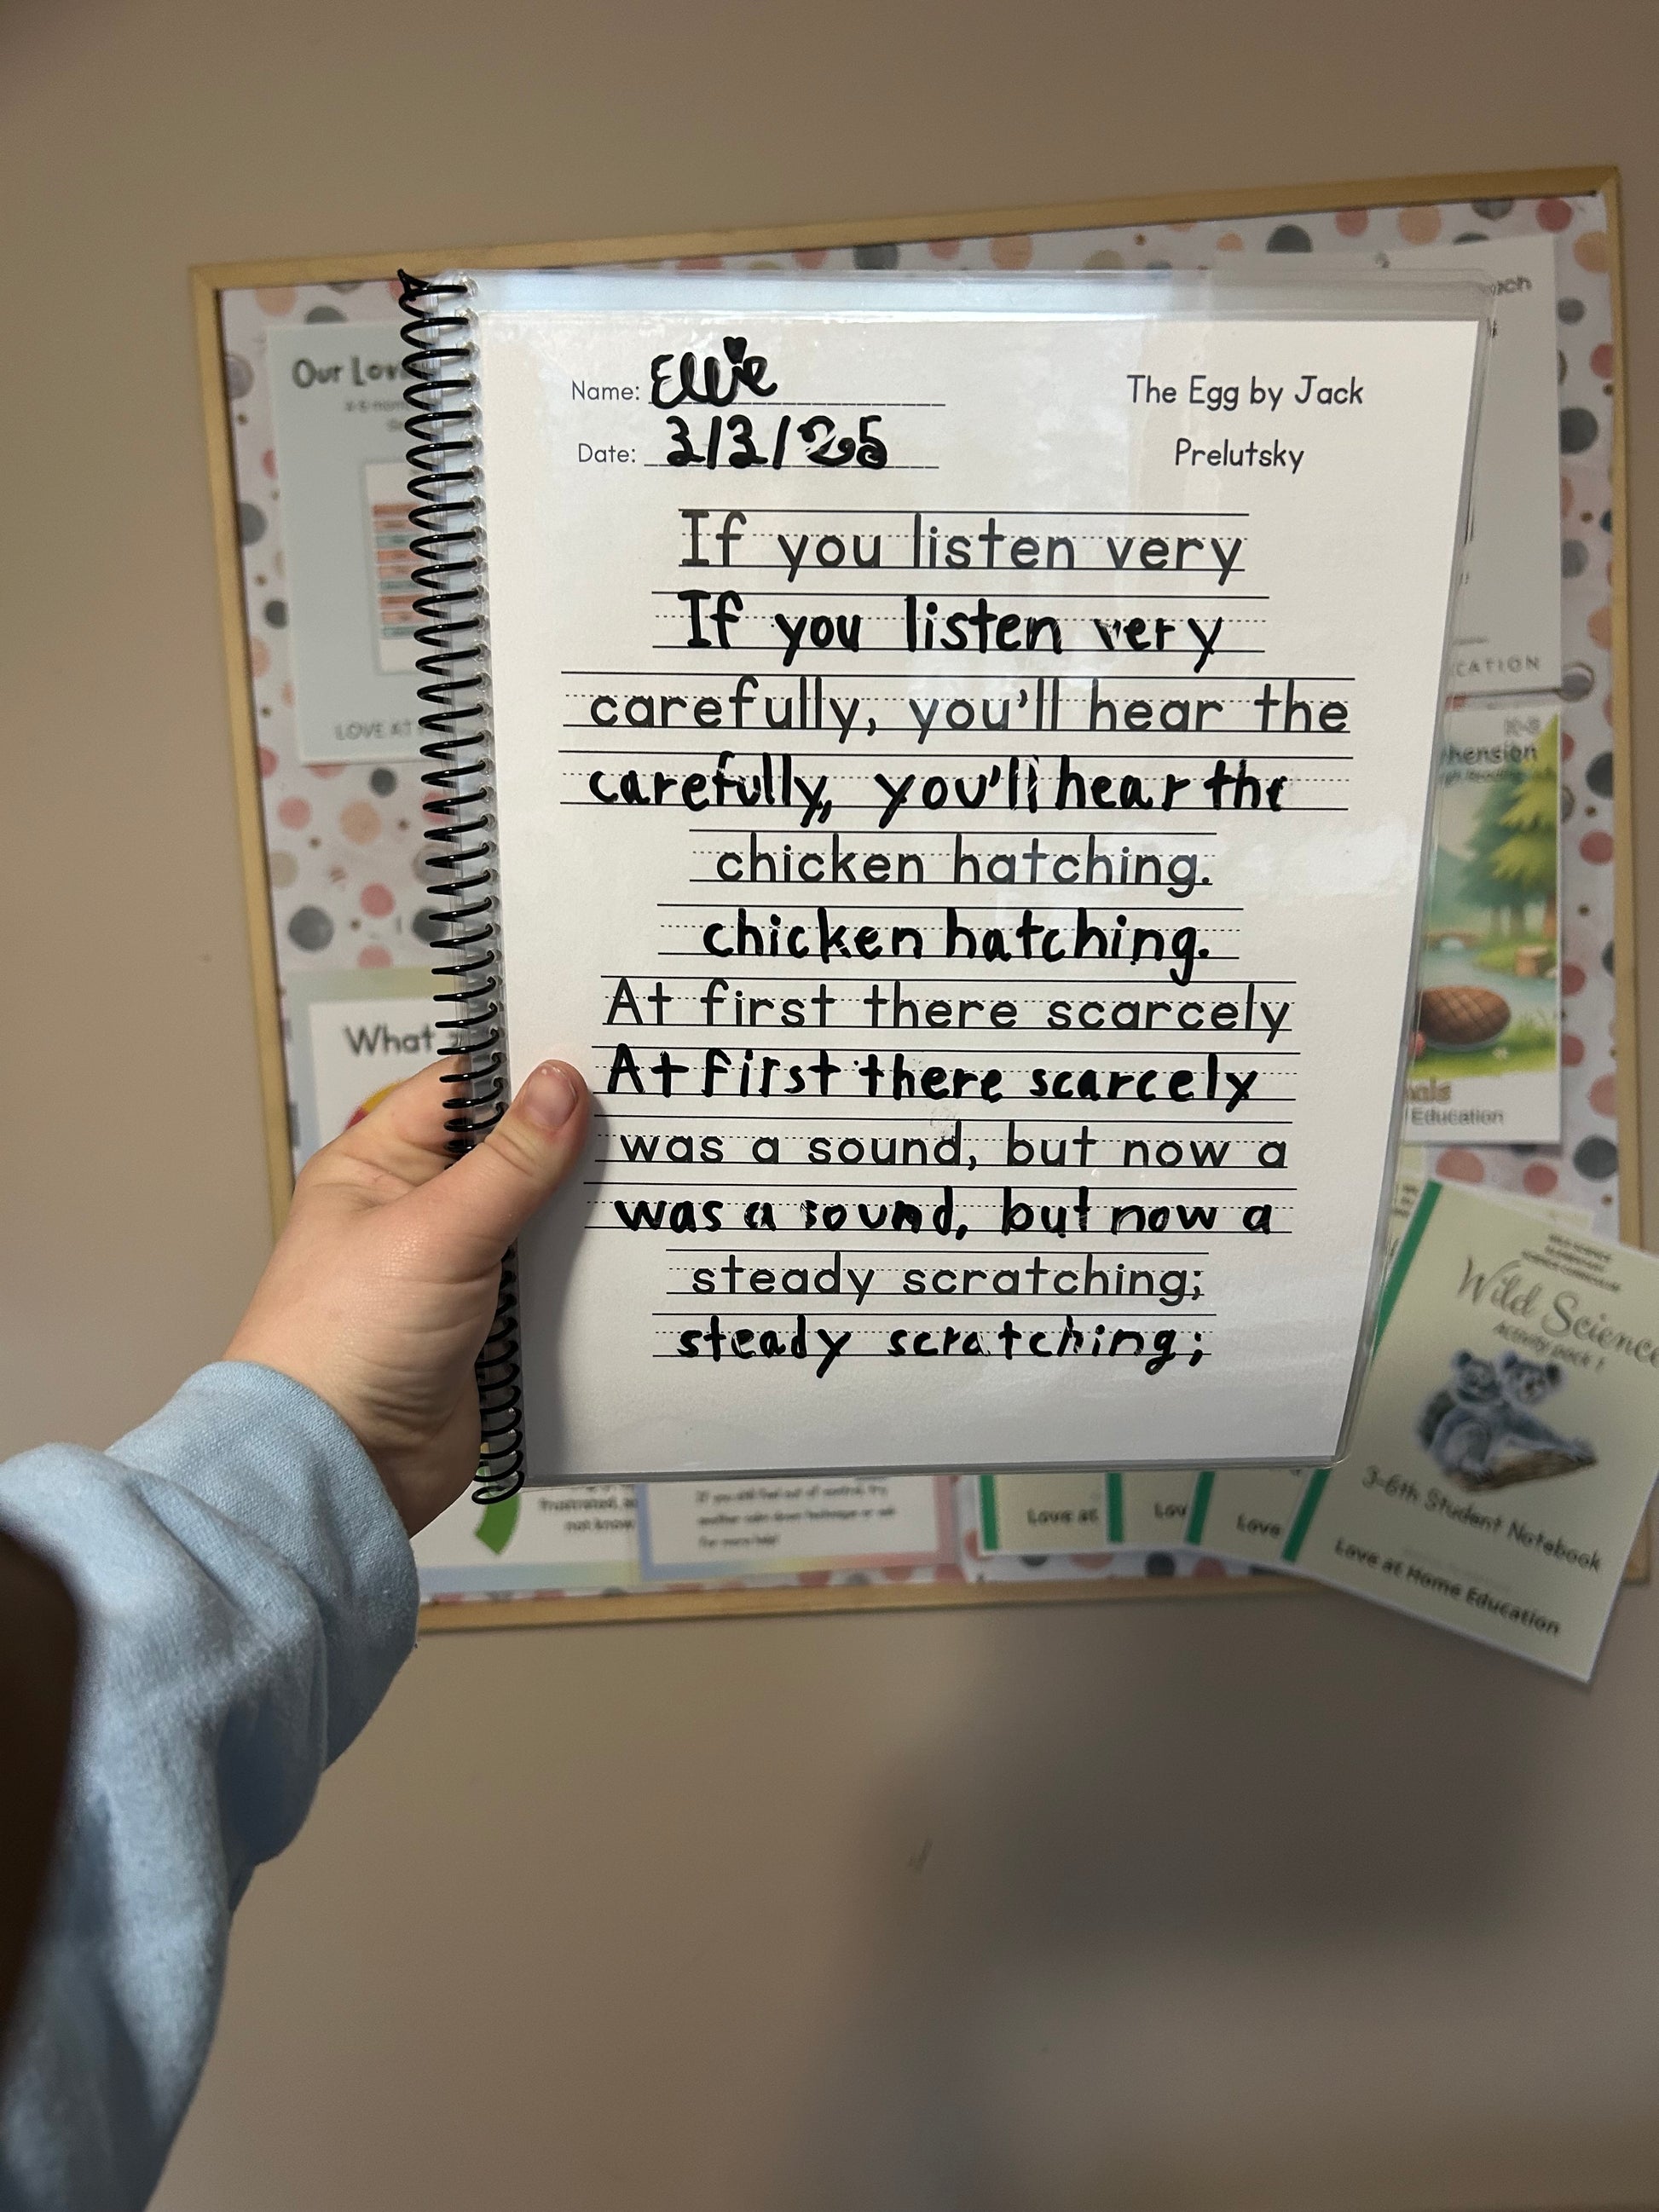 Name: Ellie
Date: 3/3/25
The Egg by Jack
Prelutsky
If you listen very
If you listen very
carefully, you'll hear the
carefully, you'll hear the
chicken hatching.
chicken hatching.
At first there scarcely
At first there scarcely
was a sound, but now a
was a sound, but now a
steady scratching;
steady scratching;
Our
LOVE AT
What
CATION
K-3
Education
Wild Science
Activity pack 1
3-6th Student Notebook
Love at Home Education
Love at
Love
frustrated,
not know
If you still feel out of control, try
another calm down technique or ask
for more help!